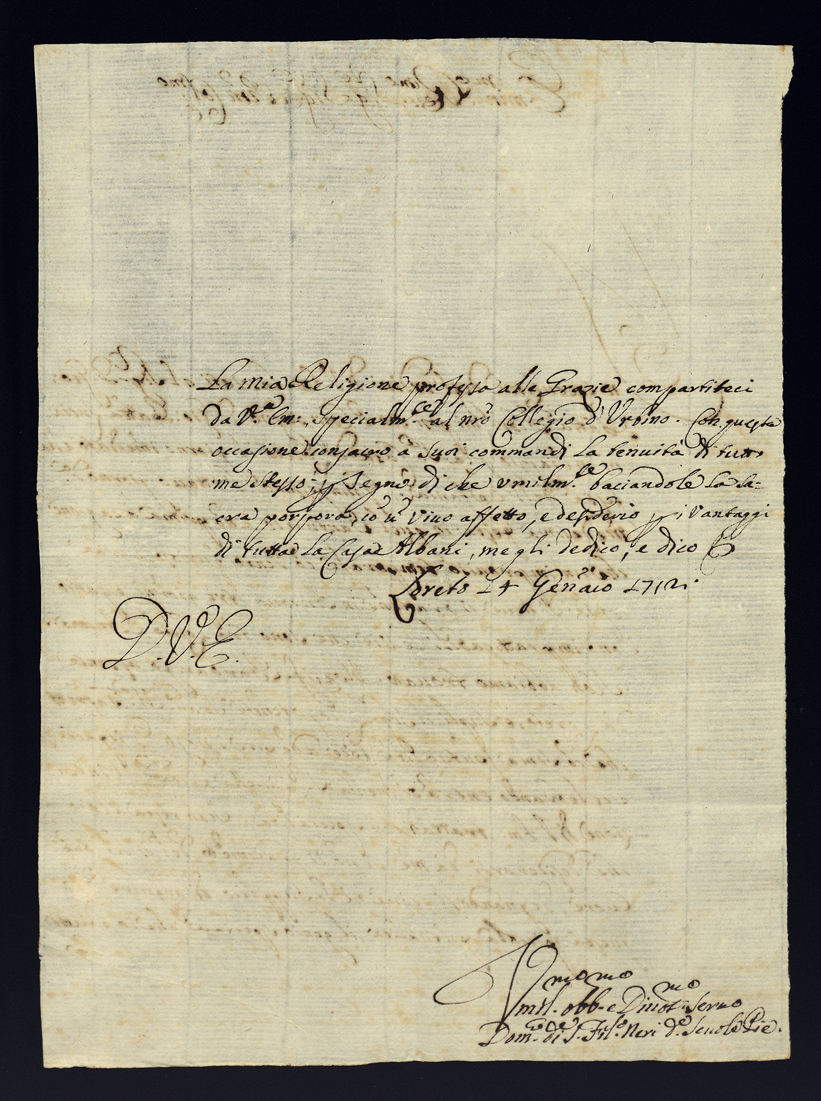 La mia Religione professa alle Grazie compartiteci
da V.ra Em: specialm.te al nr̃o Collegio d'Urbino. Con questa
occasione consacro a suoi commandi la tenuità di tutto
me stesso; segno di che umilm.te baciandole la Sa=
cra porpora, cõ uñ vivo affetto, e desiderio i vantaggi
di tutta la Casa Albani, me gli dedico, e dico
Loreto 14 Gen.aio 1712.
D. V.ra E.
Umil.mo obb.mo e Divot.mo Servo
Dom.co di S. Fil.o Neri d.e Scuole Pie.